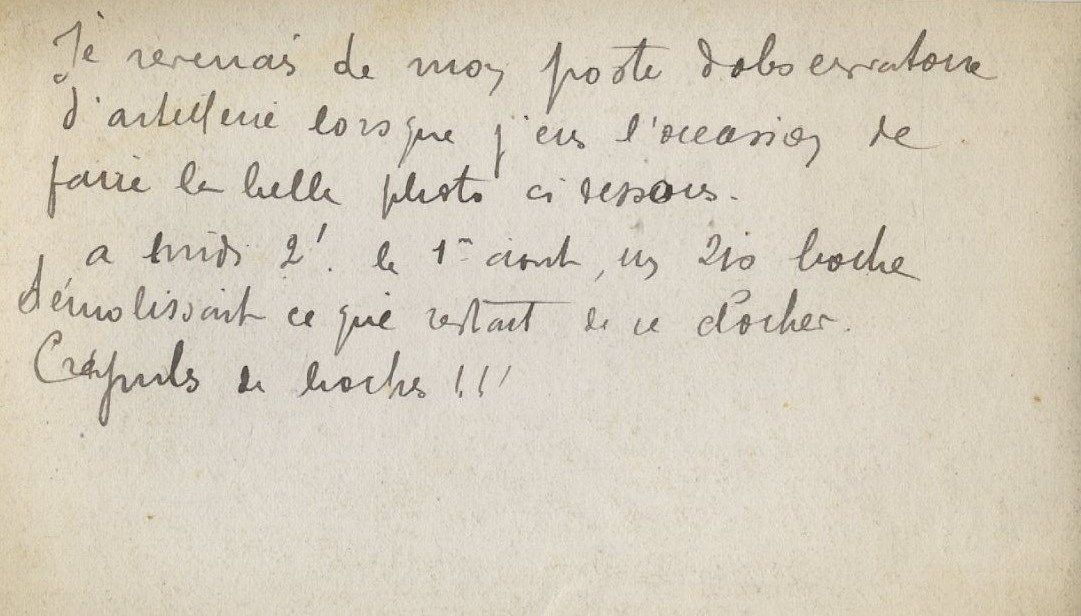 Je revenais de mon poste d'observatoire
d'artillerie lorsque j'eus l'occasion de
faire la belle photo ci dessous.
a midi 2'. le 1er aout, un 210 boche
démolissait ce qui restait de ce clocher.
Crapules de boches !!!